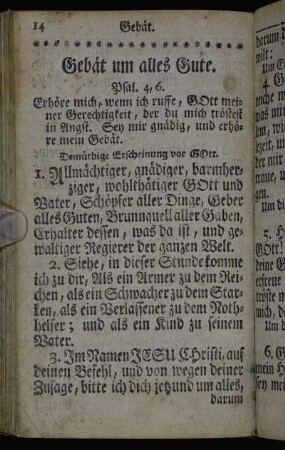 14 Gebät.
Gebät um alles Gute.
Psal. 4, 6.
Erhöre mich, wenn ich ruffe, GOtt mei-
ner Gerechtigkeit, der du mich tröstest
in Angst. Sey mir gnädig, und erhö-
re mein Gebät.
Demüthige Erscheinung vor GOtt.
1. Allmächtiger, gnädiger, barmher-
ziger, wohlthätiger GOtt und
Vater, Schöpfer aller Dinge, Geber
alles Guten, Brunnquell aller Gaben,
Erhalter dessen, was da ist, und ge-
waltiger Regierer der ganzen Welt.
2. Siehe, in dieser Stunde komme
ich zu dir, Als ein Armer zu dem Rei-
chen, als ein Schwacher zu dem Star-
ken, als ein Verlassener zu dem Noth-
helfer; und als ein Kind zu seinem
Vater.
3. Im Namen JESU Christi, auf
deinen Befehl, und von wegen deiner
Zusage, bitte ich dich jetzund um alles,
darum